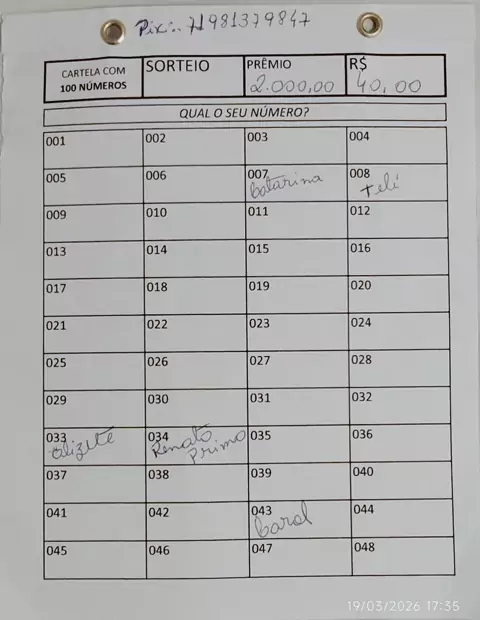 Pix:. 71981379847
CARTELA COM
100 NÚMEROS
SORTEIO
PRÊMIO
2.000,00
R$
40,00
QUAL O SEU NÚMERO?
001 002 003 004
005 006 007 008
Catarina Telí
009 010 011 012
013 014 015 016
017 018 019 020
021 022 023 024
025 026 027 028
029 030 031 032
033 034 035 036
Alizete Renato
Primo
037 038 039 040
041 042 043 044
Carol
045 046 047 048
19/03/2026 17:35